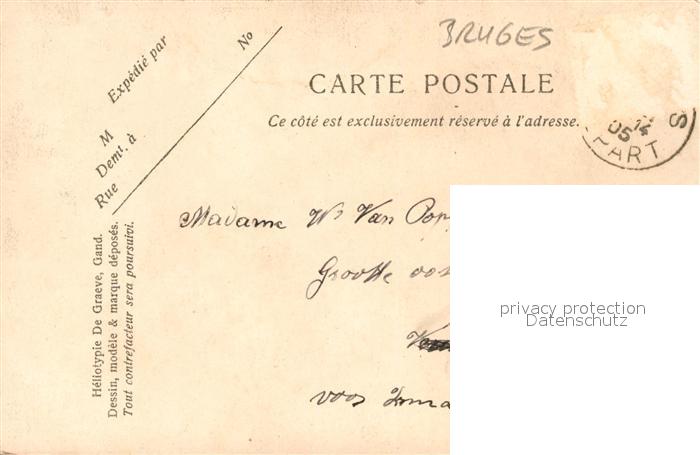 BRUGES
CARTE POSTALE
Ce côté est exclusivement réservé à l'adresse.
Expédié par
No
M
Demt. à
Rue
05 14
PART
S
Madame Van Pop
Groote
voor
Héliotypie De Graeve, Gand.
Dessin, modèle & marque déposés.
Tout contrefacteur sera poursuivi.
privacy protection
Datenschutz